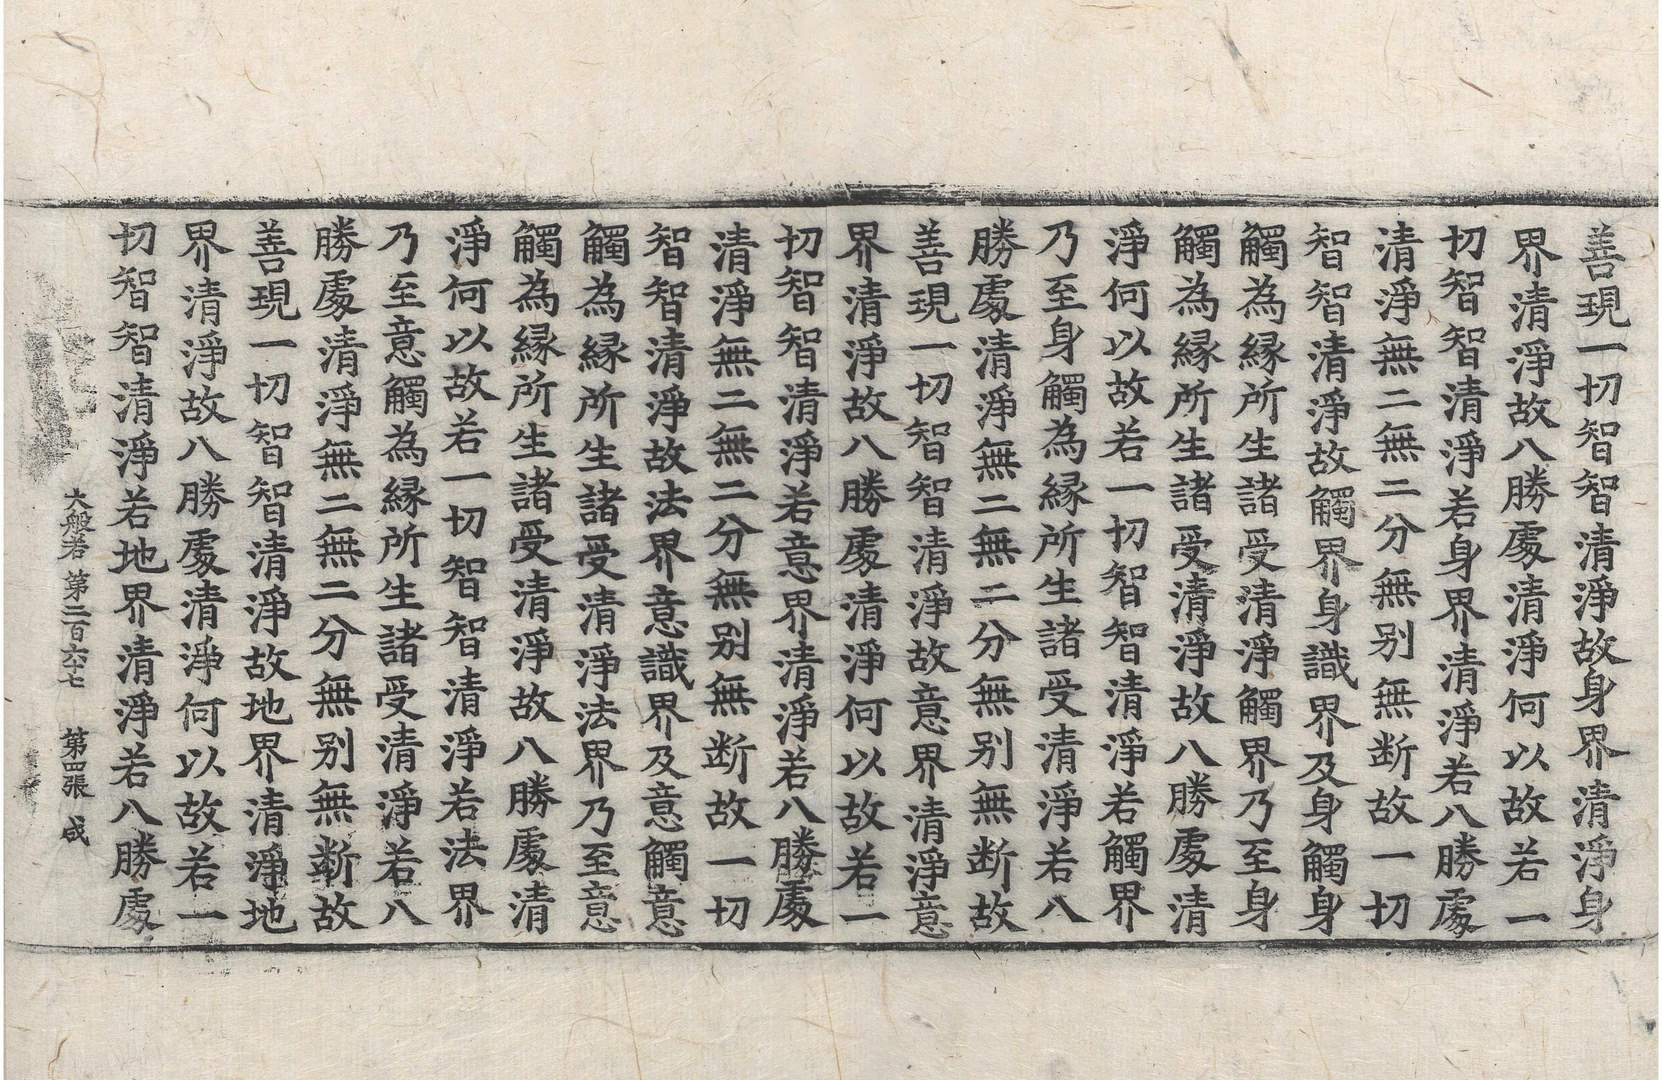 善現一切智智清淨故身界清淨身
界清淨故八勝處清淨何以故若一
切智智清淨若身界清淨若八勝處
清淨無二無二分無別無斷故一切
智智清淨故觸界身識界及身觸身
觸為緣所生諸受清淨觸界乃至身
觸為緣所生諸受清淨故八勝處清
淨何以故若一切智智清淨若觸界
乃至身觸為緣所生諸受清淨若八
勝處清淨無二無二分無別無斷故
善現一切智智清淨故意界清淨意
界清淨故八勝處清淨何以故若一
切智智清淨若意界清淨若八勝處
清淨無二無二分無別無斷故一切
智智清淨故法界意識界及意觸意
觸為緣所生諸受清淨法界乃至意
觸為緣所生諸受清淨故八勝處清
淨何以故若一切智智清淨若法界
乃至意觸為緣所生諸受清淨若八
勝處清淨無二無二分無別無斷故
善現一切智智清淨故地界清淨地
界清淨故八勝處清淨何以故若一
切智智清淨若地界清淨若八勝處
大般若 第二百六七 第四張 成